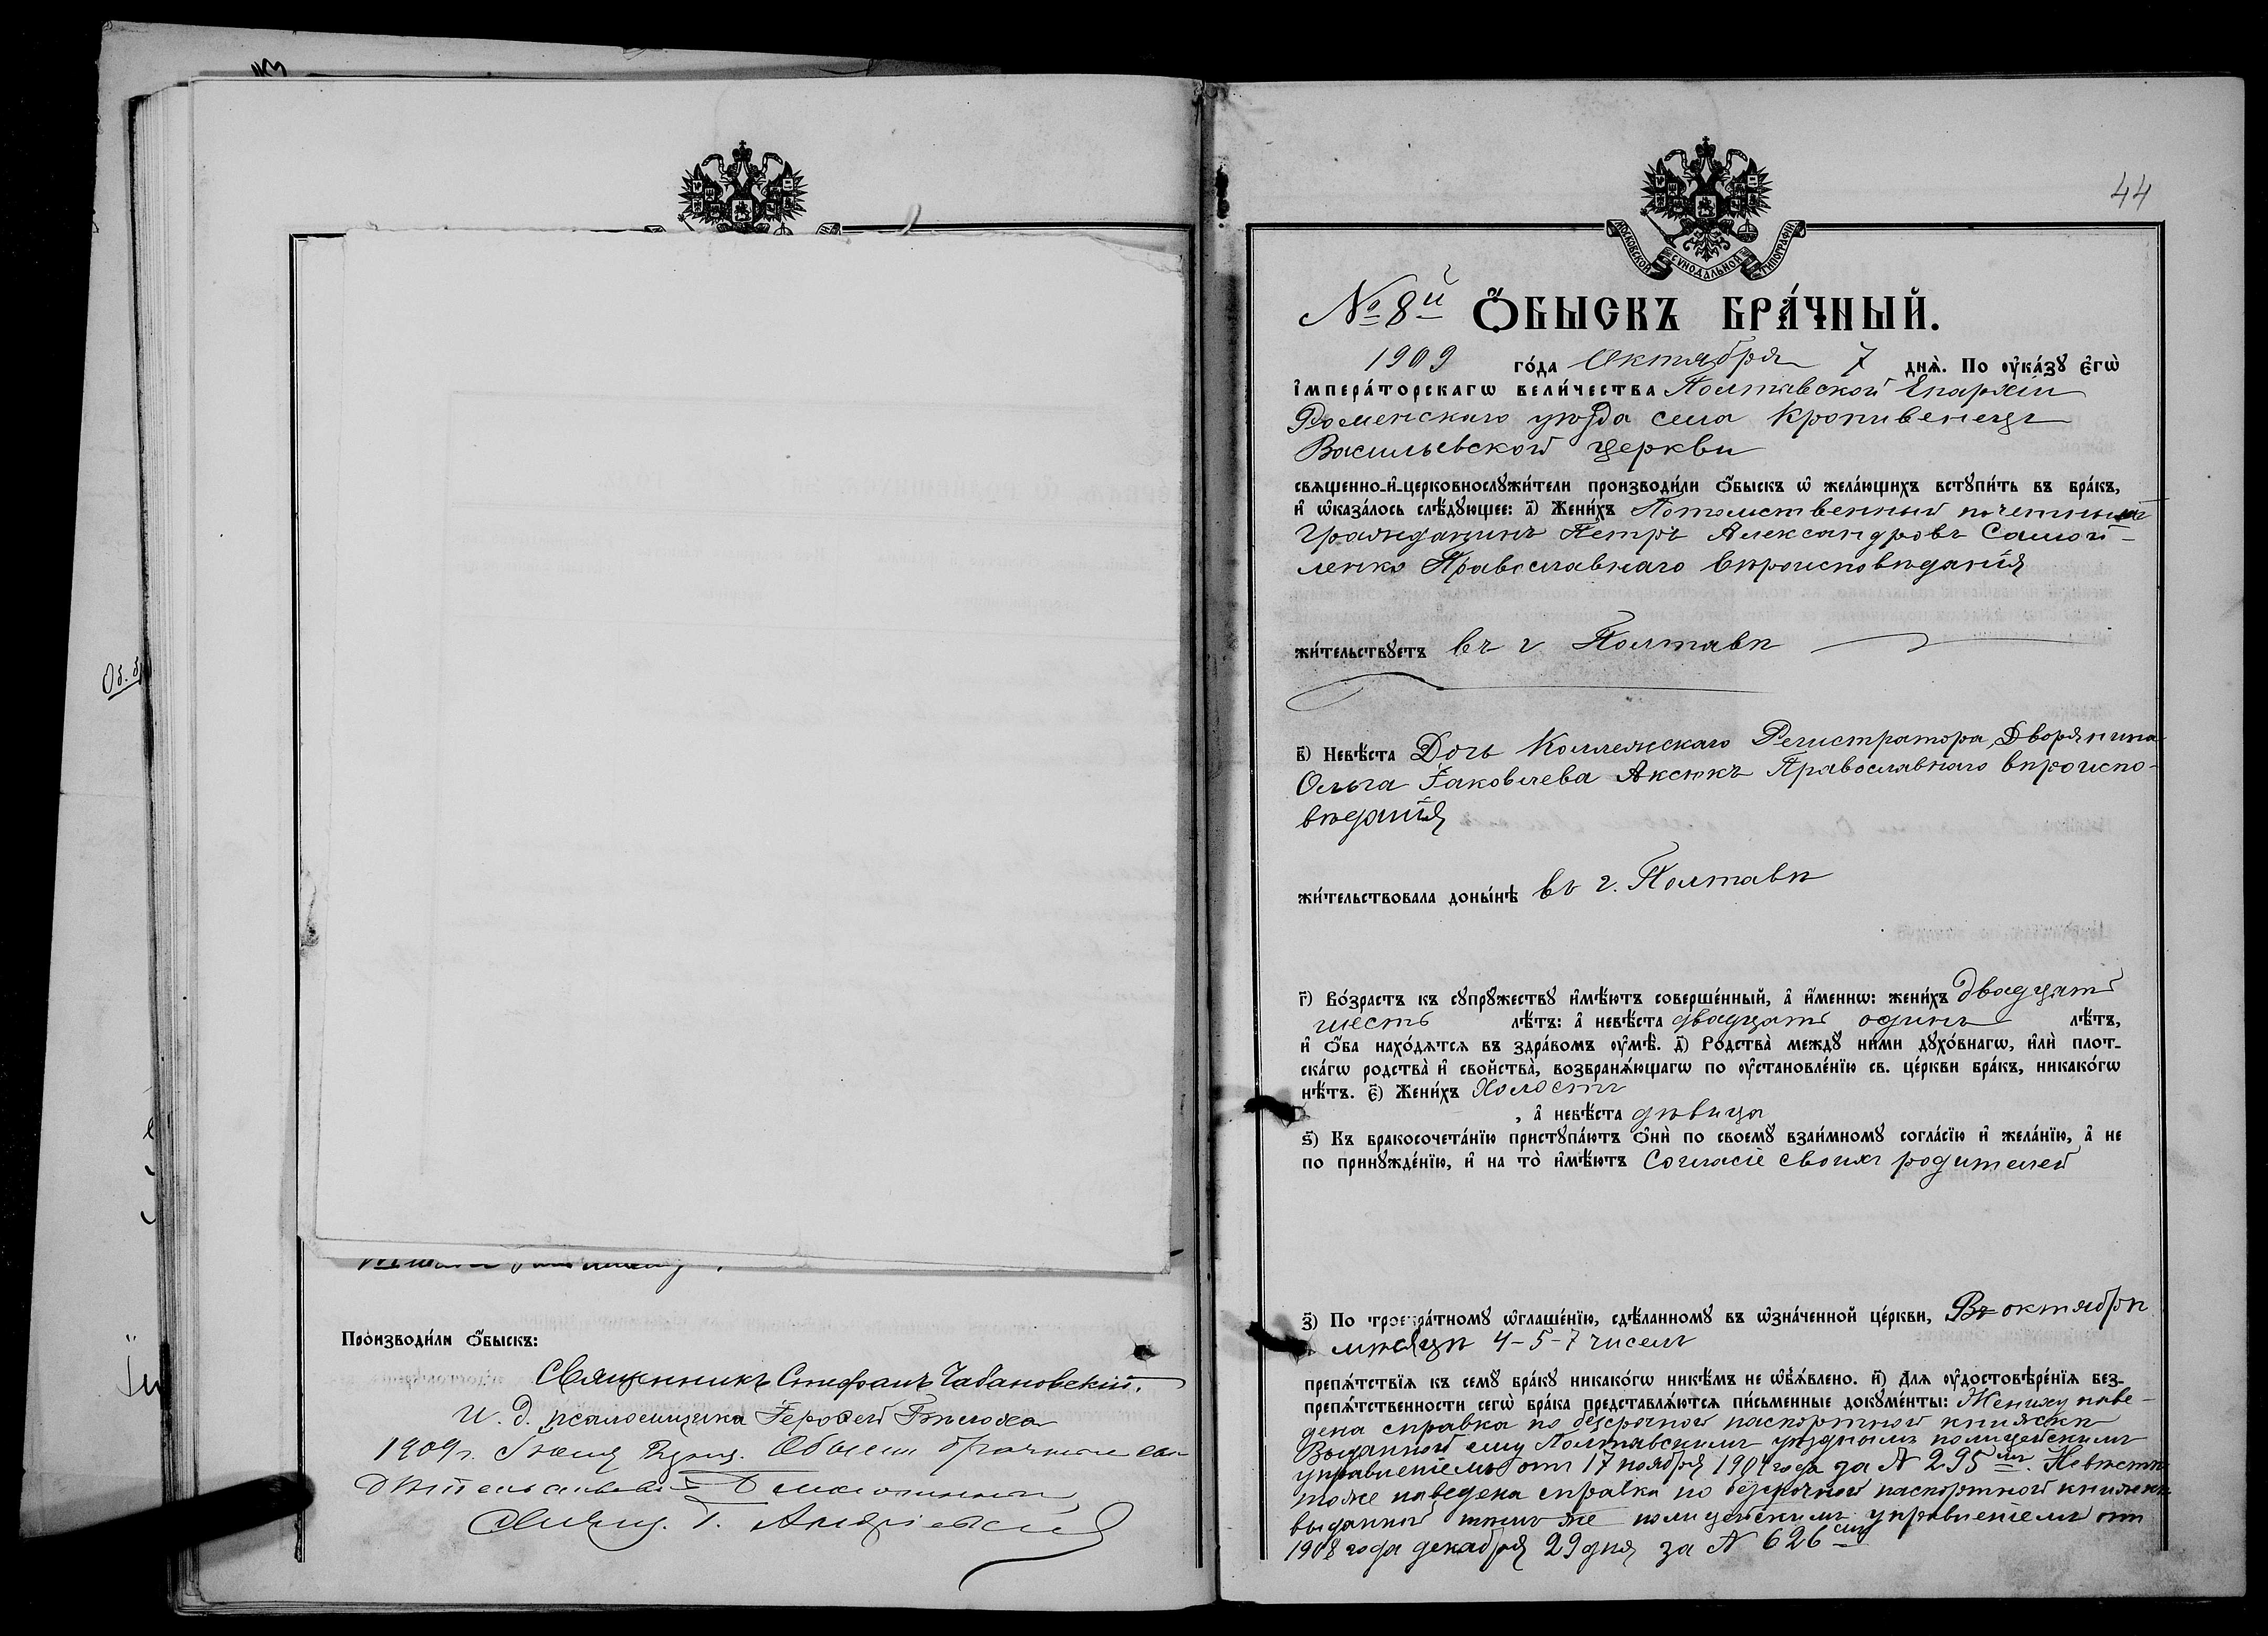 Об. б
Производи́ли ѻ҆́быскъ:
Священникъ Стефанъ Чабановскій.
И. д. псаломщика Героѳей
1909 г.
Свящ. Г.
44
МОСКОВСКОЙ СѴНОДАЛЬНОЙ ТИПОГРАФІИ
№ 8й Ѻ҆́БЫСКЪ БРА́ЧНЫЙ.
1909 го́да Октября 7 днѧ̀. По ᲂу҆ка́зꙋ є҆гѡ̀
і҆мпера́торскагѡ вели́чества Полтавской Епархіи
Роменскаго уѣзда села Кропивенецъ
Васильевской церкви
свѧщенно-и҆-церковнослꙋжи́тели производи́ли ѻ҆́быскъ ѡ҆ жела́ющихъ вступи́ть въ бра́къ,
и҆ ѡ҆каза́лось слѣ́дꙋющее: а҃) Жени́хъ Потомственный почетный
гражданинъ Петръ Александровъ Самой-
ленко Православнаго вѣроисповѣданія
жи́тельствꙋетъ въ г Полтавѣ
в҃) Невѣ́ста Дочь Коллежскаго Регистратора, Дворянина
Ольга Іаковлева Аксюкъ Православнаго вѣроиспо-
вѣданія
жи́тельствовала донынѣ въ г. Полтавѣ
г҃) Во́зрастъ къ сꙋпрꙋжествꙋ и҆мѣ́ютъ соверше́нный, а҆ и҆́меннѡ: жени́хъ двадцать
шесть лѣ́тъ: а҆ невѣ́ста двадцать одинъ лѣ́тъ,
и҆ ѻ҆́ба нахо́дѧтсѧ въ здра́вомъ ᲂу҆мѣ̀. д҃) Родства̀ междꙋ̀ ни́ми дꙋхо́внагѡ, и҆лѝ плот-
ска́гѡ родства̀ и҆ свойства̀, возбранѧ́ющагѡ по ᲂу҆становле́нїю св. це́ркви бра́къ, никако́гѡ
нѣ́тъ. є҃) Жени́хъ Холостъ
, а҆ невѣ́ста дѣвица
ѕ҃) Къ бракосочета́нїю пристꙋпа́ютъ ѻ҆нѝ по своемꙋ̀ взаи́мномꙋ согла́сїю и҆ жела́нїю, а҆ не
по принꙋжде́нїю, и҆ на то̀ и҆мѣ́ютъ Согласіе своихъ родителей
з҃) По троекра́тномꙋ ѡ҆глаше́нїю, сдѣ́ланномꙋ въ ѡ҆зна́ченной це́ркви, Въ октябрѣ
мѣсяцѣ 4-5-7 чиселъ
препѧ́тствїѧ къ семꙋ̀ бра́кꙋ никако́гѡ никѣ́мъ не ѡ҆б̾ѧ́влено. и҃) Длѧ ᲂу҆достовѣре́нїѧ без-
препѧ́тственности сегѡ̀ бра́ка представлѧ́ютсѧ пи́сьменные докꙋме́нты: Жениху наве-
дена справка по безсрочной паспортной книжкѣ
Выданной ему Полтавскимъ уѣзднымъ полицейскимъ
управленіемъ отъ 17 ноября 1904 года за № 295мъ. Невѣстѣ
тоже наведена справка по безсрочной паспортной книжкѣ
выданной тѣмъ же полицейскимъ управленіемъ отъ
1908 года декабря 29 дня за № 626